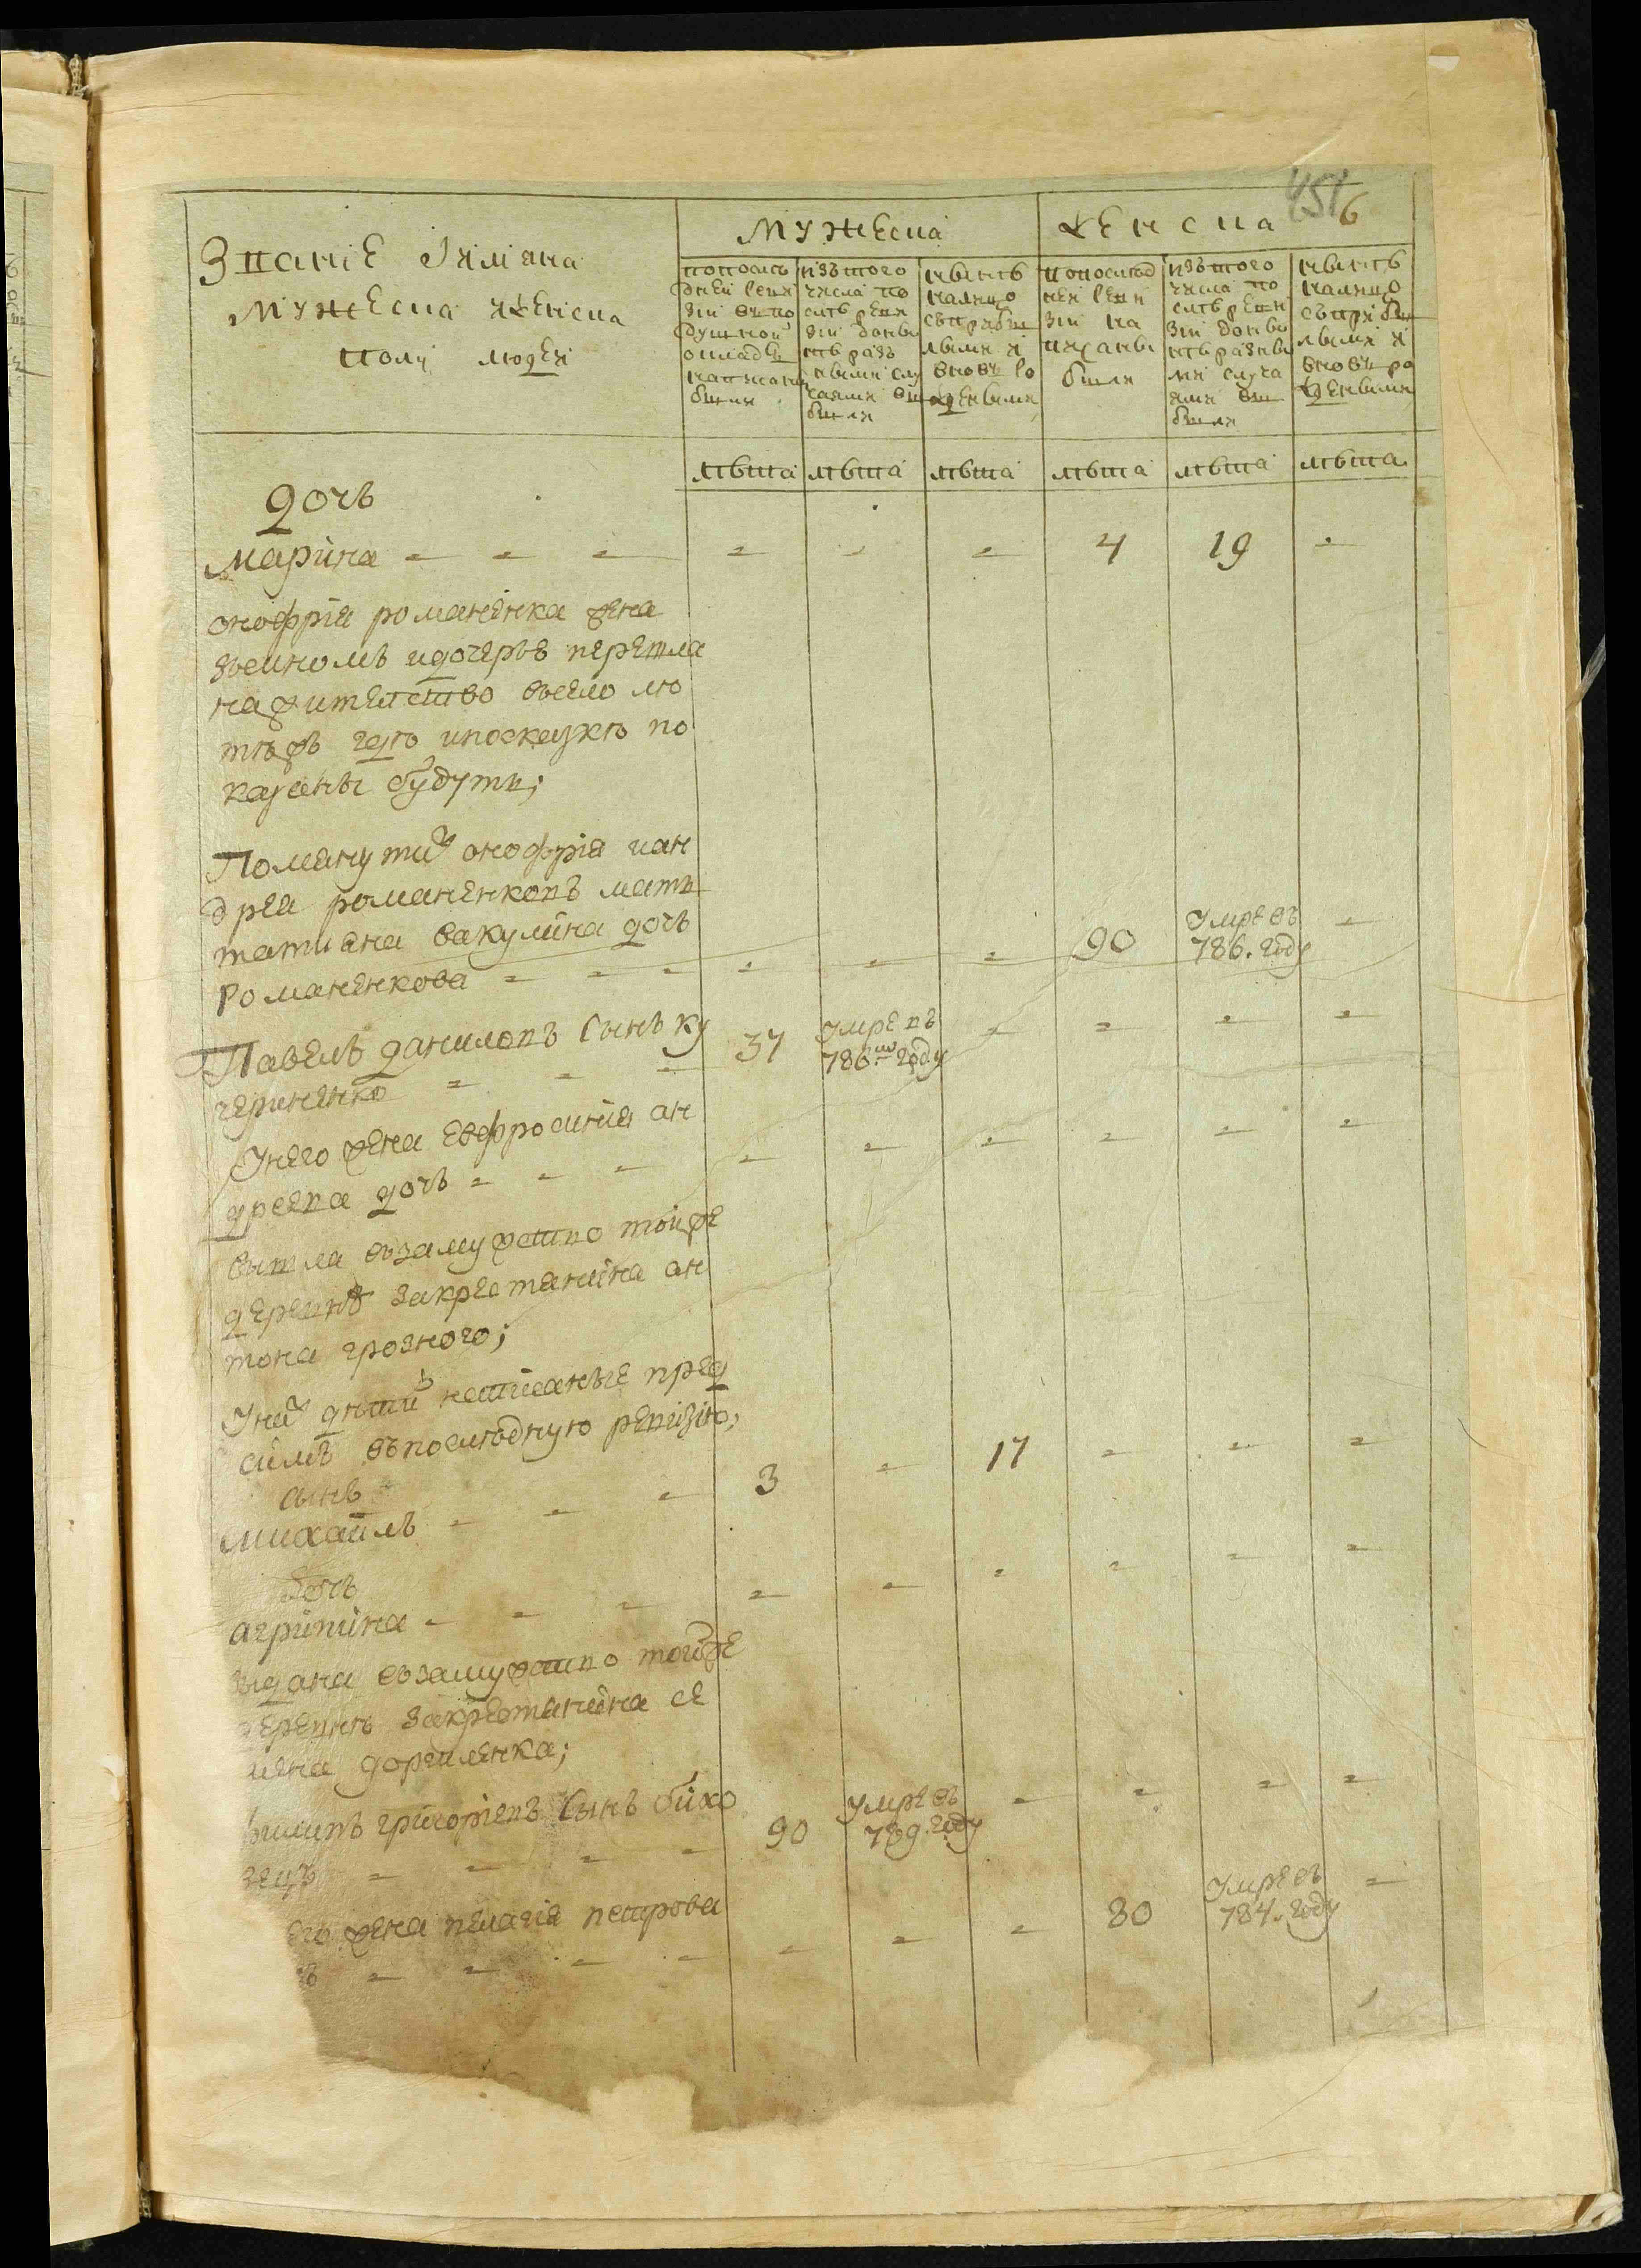 451 6
Званiе Iимiана
мужеска иженска
полу людей
мужеска
женска
попослѣ
дней реви
зiи въпо
душной
окладъ
написаны
были
изътого
числа по
слѣ реви
зiи донын
нѣ разъ
ными слу
чаями вы
были
нынѣ
налицо
съприбы
лыми и
вновь ро
ждеными
попослѣд
ней реви
зiи на
писаны
были
изътого
числа по
слѣ реви
зiи донын
нѣ разны
ми случа
ями вы
были
нынѣ
налицо
съприбы
лыми и
вновь ро
ждеными
лѣта лѣта лѣта лѣта лѣта лѣта
дочь
марина - - - - - - 4 19 -
онофрiя романенка жена
зъсиномъ идочерью перешла
нажителство въсело лю
тѣжъ гдѣ ипосказкѣ по
казаны будутъ;
Помянутих онофрiя иан
дрея романенковъ мать
татиана вакулина дочь
романенкова - - - - - - 90 умре въ 786. году -
Павелъ даниловъ сынъ ку
чериненко - - - 37 умре въ 786мъ году - - - -
Унего жена евфросинiя ан
дреева дочь - - - - - - - - -
вышла взамужство тойже
деревнѣ закрестянина ан
тона грозного;
Унихъ дѣтий написаные пред
симъ въпослѣдную ревизiю;
сынъ
михаилъ - - - 3 - 17 - - -
дочь
агрипина - - - - - - - - -
выдана взамужство тойже
деревнѣ закрестянина се
мена доргиленка;
филипъ григориевъ сынъ бихо
вецъ - - - - 90 умре въ 789. году - - - -
его жена пелагiя петрова
- - - - - - - 80 умре въ 784. году -